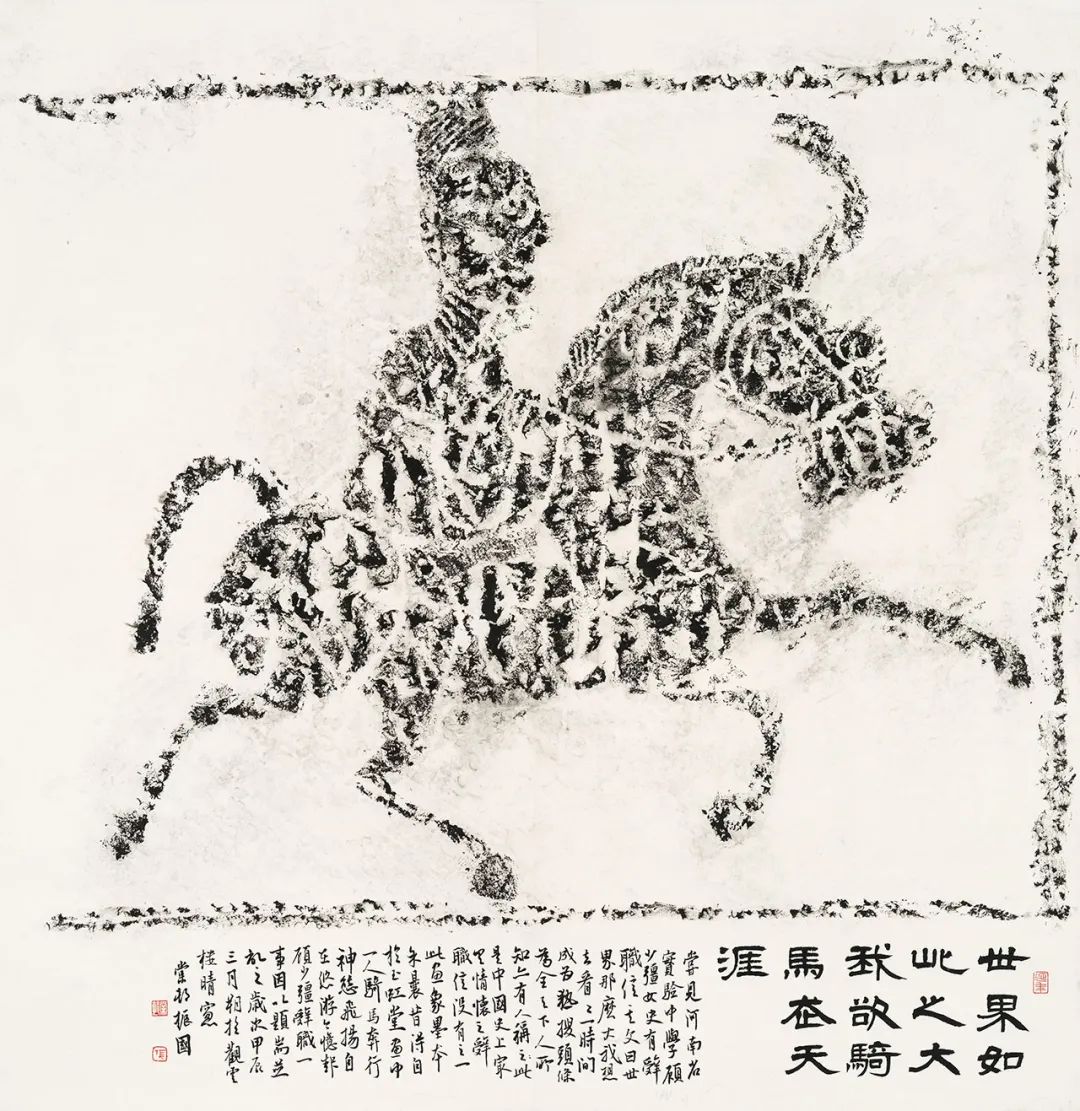 世果如
此之大
我欲騎
馬在天
涯
嘗見河南省
實驗中學顧
少彊女史有辭
職信其文曰世
界那麼大我想
去看〻一時間
成為熱搜頭條
為全天下人所
知亦有人稱之此
是中國史上最
具情懷之辭
職信沒有之一
此畫象墨本
余曩昔得自
於玉虹堂畫中
一人騎馬奔行
神態飛揚自
在悠游令憶起
顧少彊辭職一
事因以題耑並
敘之歲次甲辰
三月朔於觀雲
樓晴窗
振國